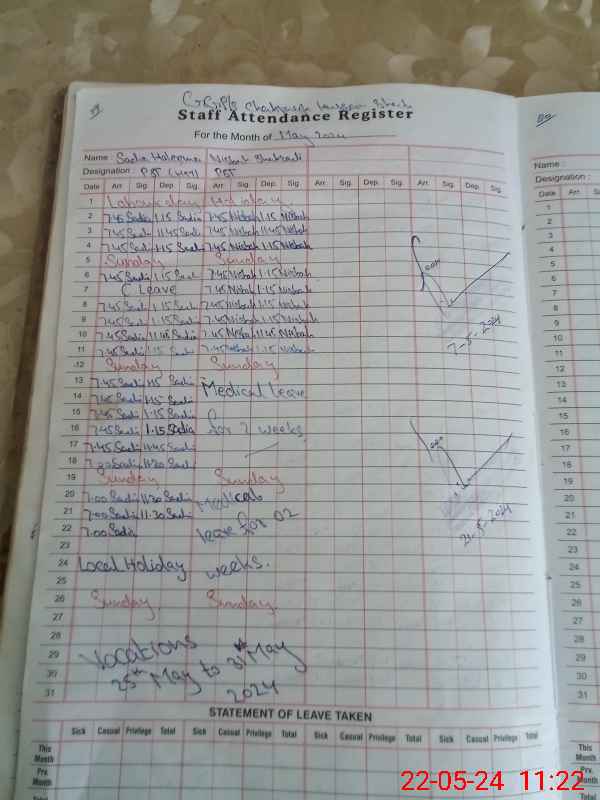 Staff Attendance Register
For the Month of May 2024
Name : Sadia Nisbah
Designation : PST PST
Date Arr. Sig. Dep. Sig. Arr. Sig. Dep. Sig. Arr. Sig. Dep. Sig. Arr. Sig. Dep. Sig.
1 Labour day Holiday
2 7.45 Sadia 1.15 Sadia 7.45 Nisbah 1.15 Nisbah
3 7.45 Sadia 11.45 Sadia 7.45 Nisbah 11.45 Nisbah
4 7.45 Sadia 1.15 Sadia 7.45 Nisbah 1.15 Nisbah
5 Sunday Sunday
6 7.45 Sadia 1.15 Sadia 7.45 Nisbah 1.15 Nisbah
7 Leave 7.45 Nisbah 1.15 Nisbah
8 7.45 Sadia 1.15 Sadia 7.45 Nisbah 1.15 Nisbah
9 7.45 Sadia 1.15 Sadia 7.45 Nisbah 1.15 Nisbah
10 7.45 Sadia 11.45 Sadia 7.45 Nisbah 11.45 Nisbah
11 7.45 Sadia 1.15 Sadia 7.45 Nisbah 1.15 Nisbah
7-5-2024
12 Sunday Sunday
13 7.45 Sadia 1.15 Sadia
14 7.45 Sadia 1.15 Sadia Medical Leave
15 7.45 Sadia 1.15 Sadia
16 7.45 Sadia 1.15 Sadia for 2 weeks
17 7.45 Sadia 11.45 Sadia
18 7.30 Sadia 11.30 Sadia
19 Sunday Sunday
20 7.00 Sadia 11.30 Sadia Medical
21 7.00 Sadia 11.30 Sadia
22 7.00 Sadia leave for 02
23
24 Local Holiday weeks.
25
26 Sunday. Sunday.
27
28
29 Vacations
30 25th May to 31st May
31 2024
STATEMENT OF LEAVE TAKEN
Sick Casual Privilege Total Sick Casual Privilege Total Sick Casual Privilege Total Sick Casual Privilege Total
This Month
Prv. Month
Total
Name :
Designation :
Date Arr.
1
2
3
4
5
6
7
8
9
10
11
12
13
14
15
16
17
18
19
20
21
22
23
24
25
26
27
28
29
30
31
Sick
This Month
Prv. Month
22-05-24 11:22